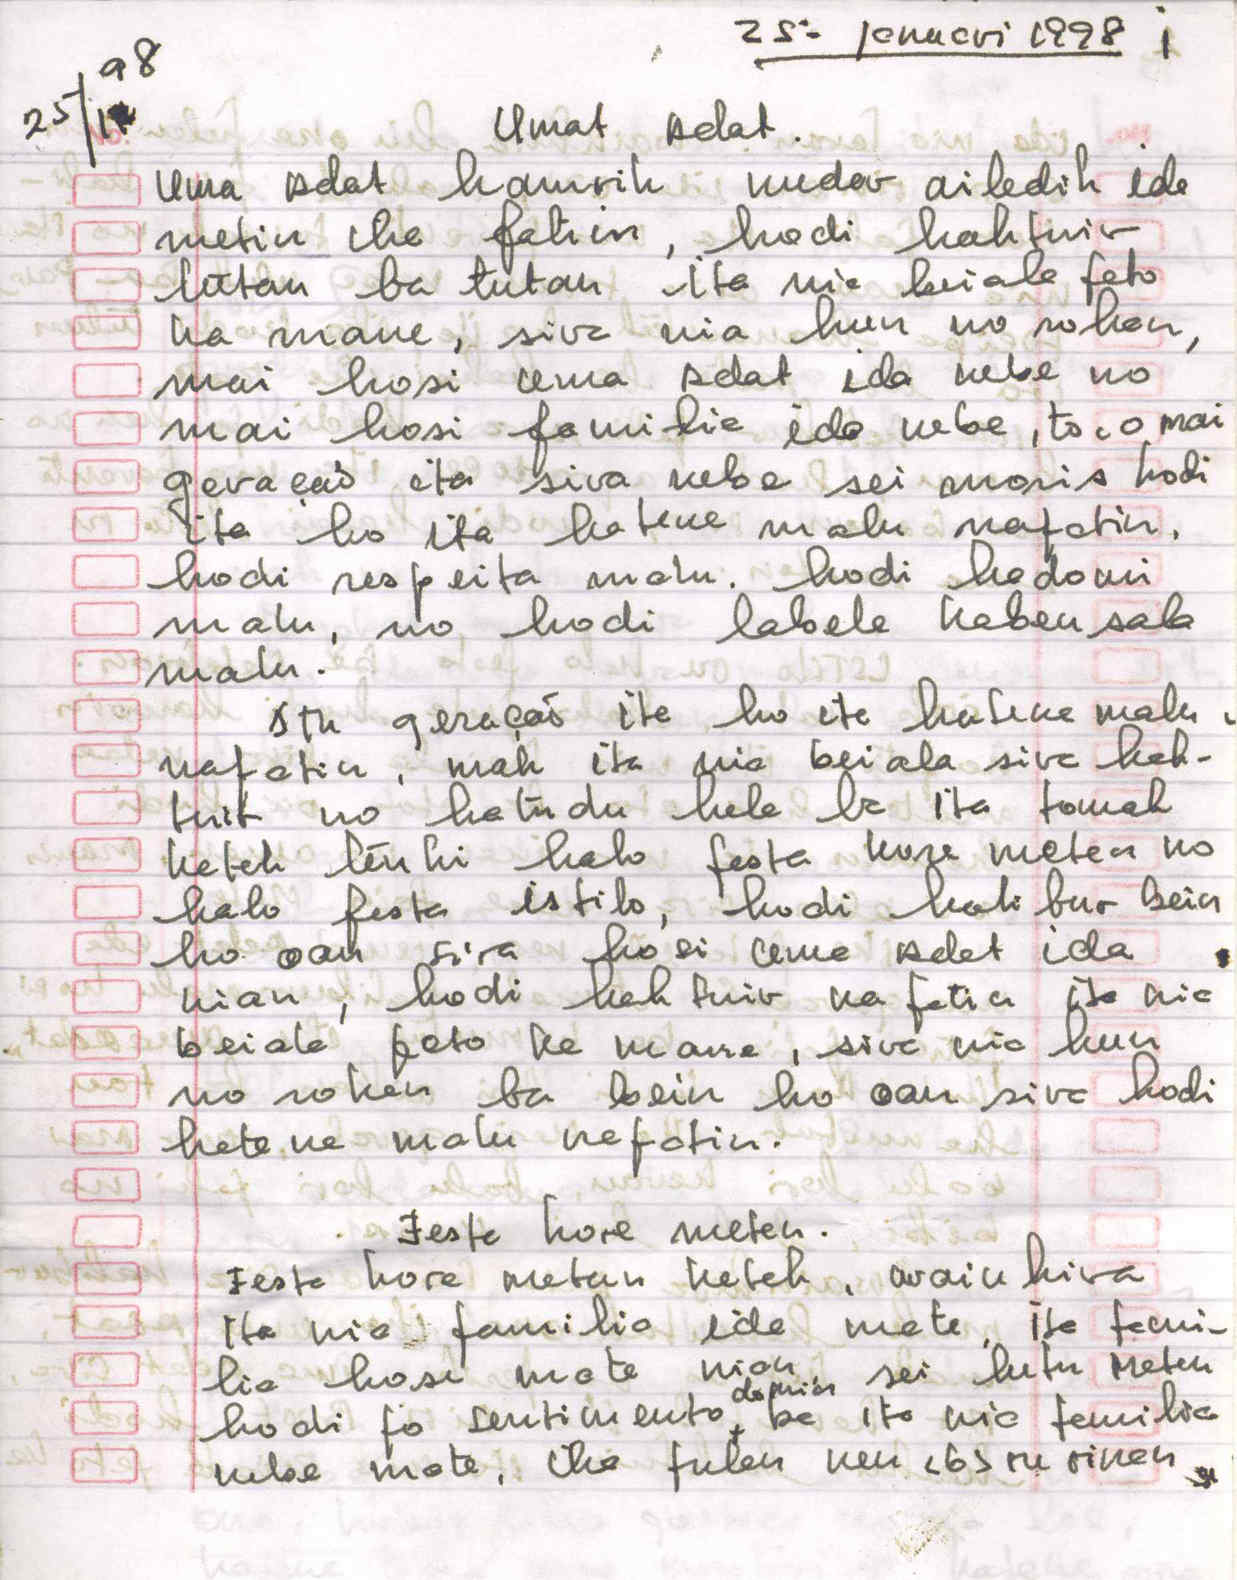 25- Januari 1998 i
25/1 98
Umat Adat.
Uma Adat hanesih nudar ai ledih ida
metin iha fatin, hodi hahtuir
lūtan ba tutan ita nia beiala feto
ka mane, sira nia hun no rohan,
mai hosi uma Adat ida nebe no
mai hosi familia ida nebe, to, o mai
geraçaõ ita sira nebe sei moris hodi
ita ho ita hatene malu nafatin,
hodi respeita malu. hodi hadomi
malu, no hodi labele kaben sala
malu.
Atu geraçaõ ita ho ita hatene malu
nafatin, mak ita nia beiala sira hah-
tuit no hatūdu hela ba ita tomak
katek tēnki halo festa kore metan no
halo festa istilo, hodi halibur bein
ho oan sira hosi uma Adat ida
nian, hodi hahtuir nafatin ita nia
beiala feto ka mane, sira nia hun
no rohan ba bein ho oan sira hodi
hatene malu nafatin.
Festa kore metan.
Festa kore metan katek, wainhira
ita nia familia ida mate, ita fami-
lia hosi mate nian sei lutu metan
hodi fo sentimento, damian ba ita nia familia
nebe mate, iha fulan nen (6) ru sinan